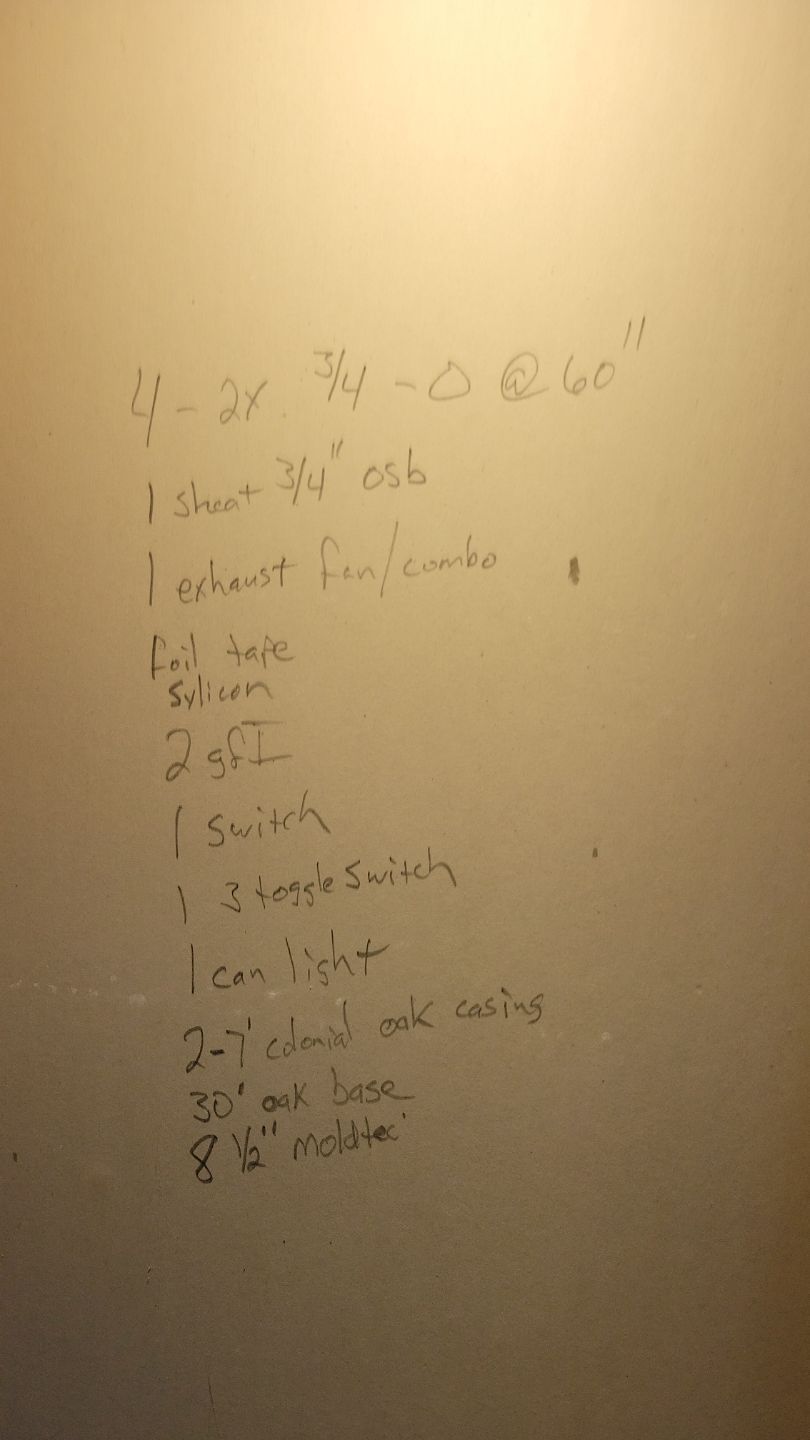 4 - 2x 3/4 - 0 @ 60"
1 sheat 3/4" osb
1 exhaust fan/combo
foil tape
sylicon
2 gfI
1 switch
1 3 toggle switch
1 can light
2-7' colonial oak casing
30' oak base
8 1/2" moldtec